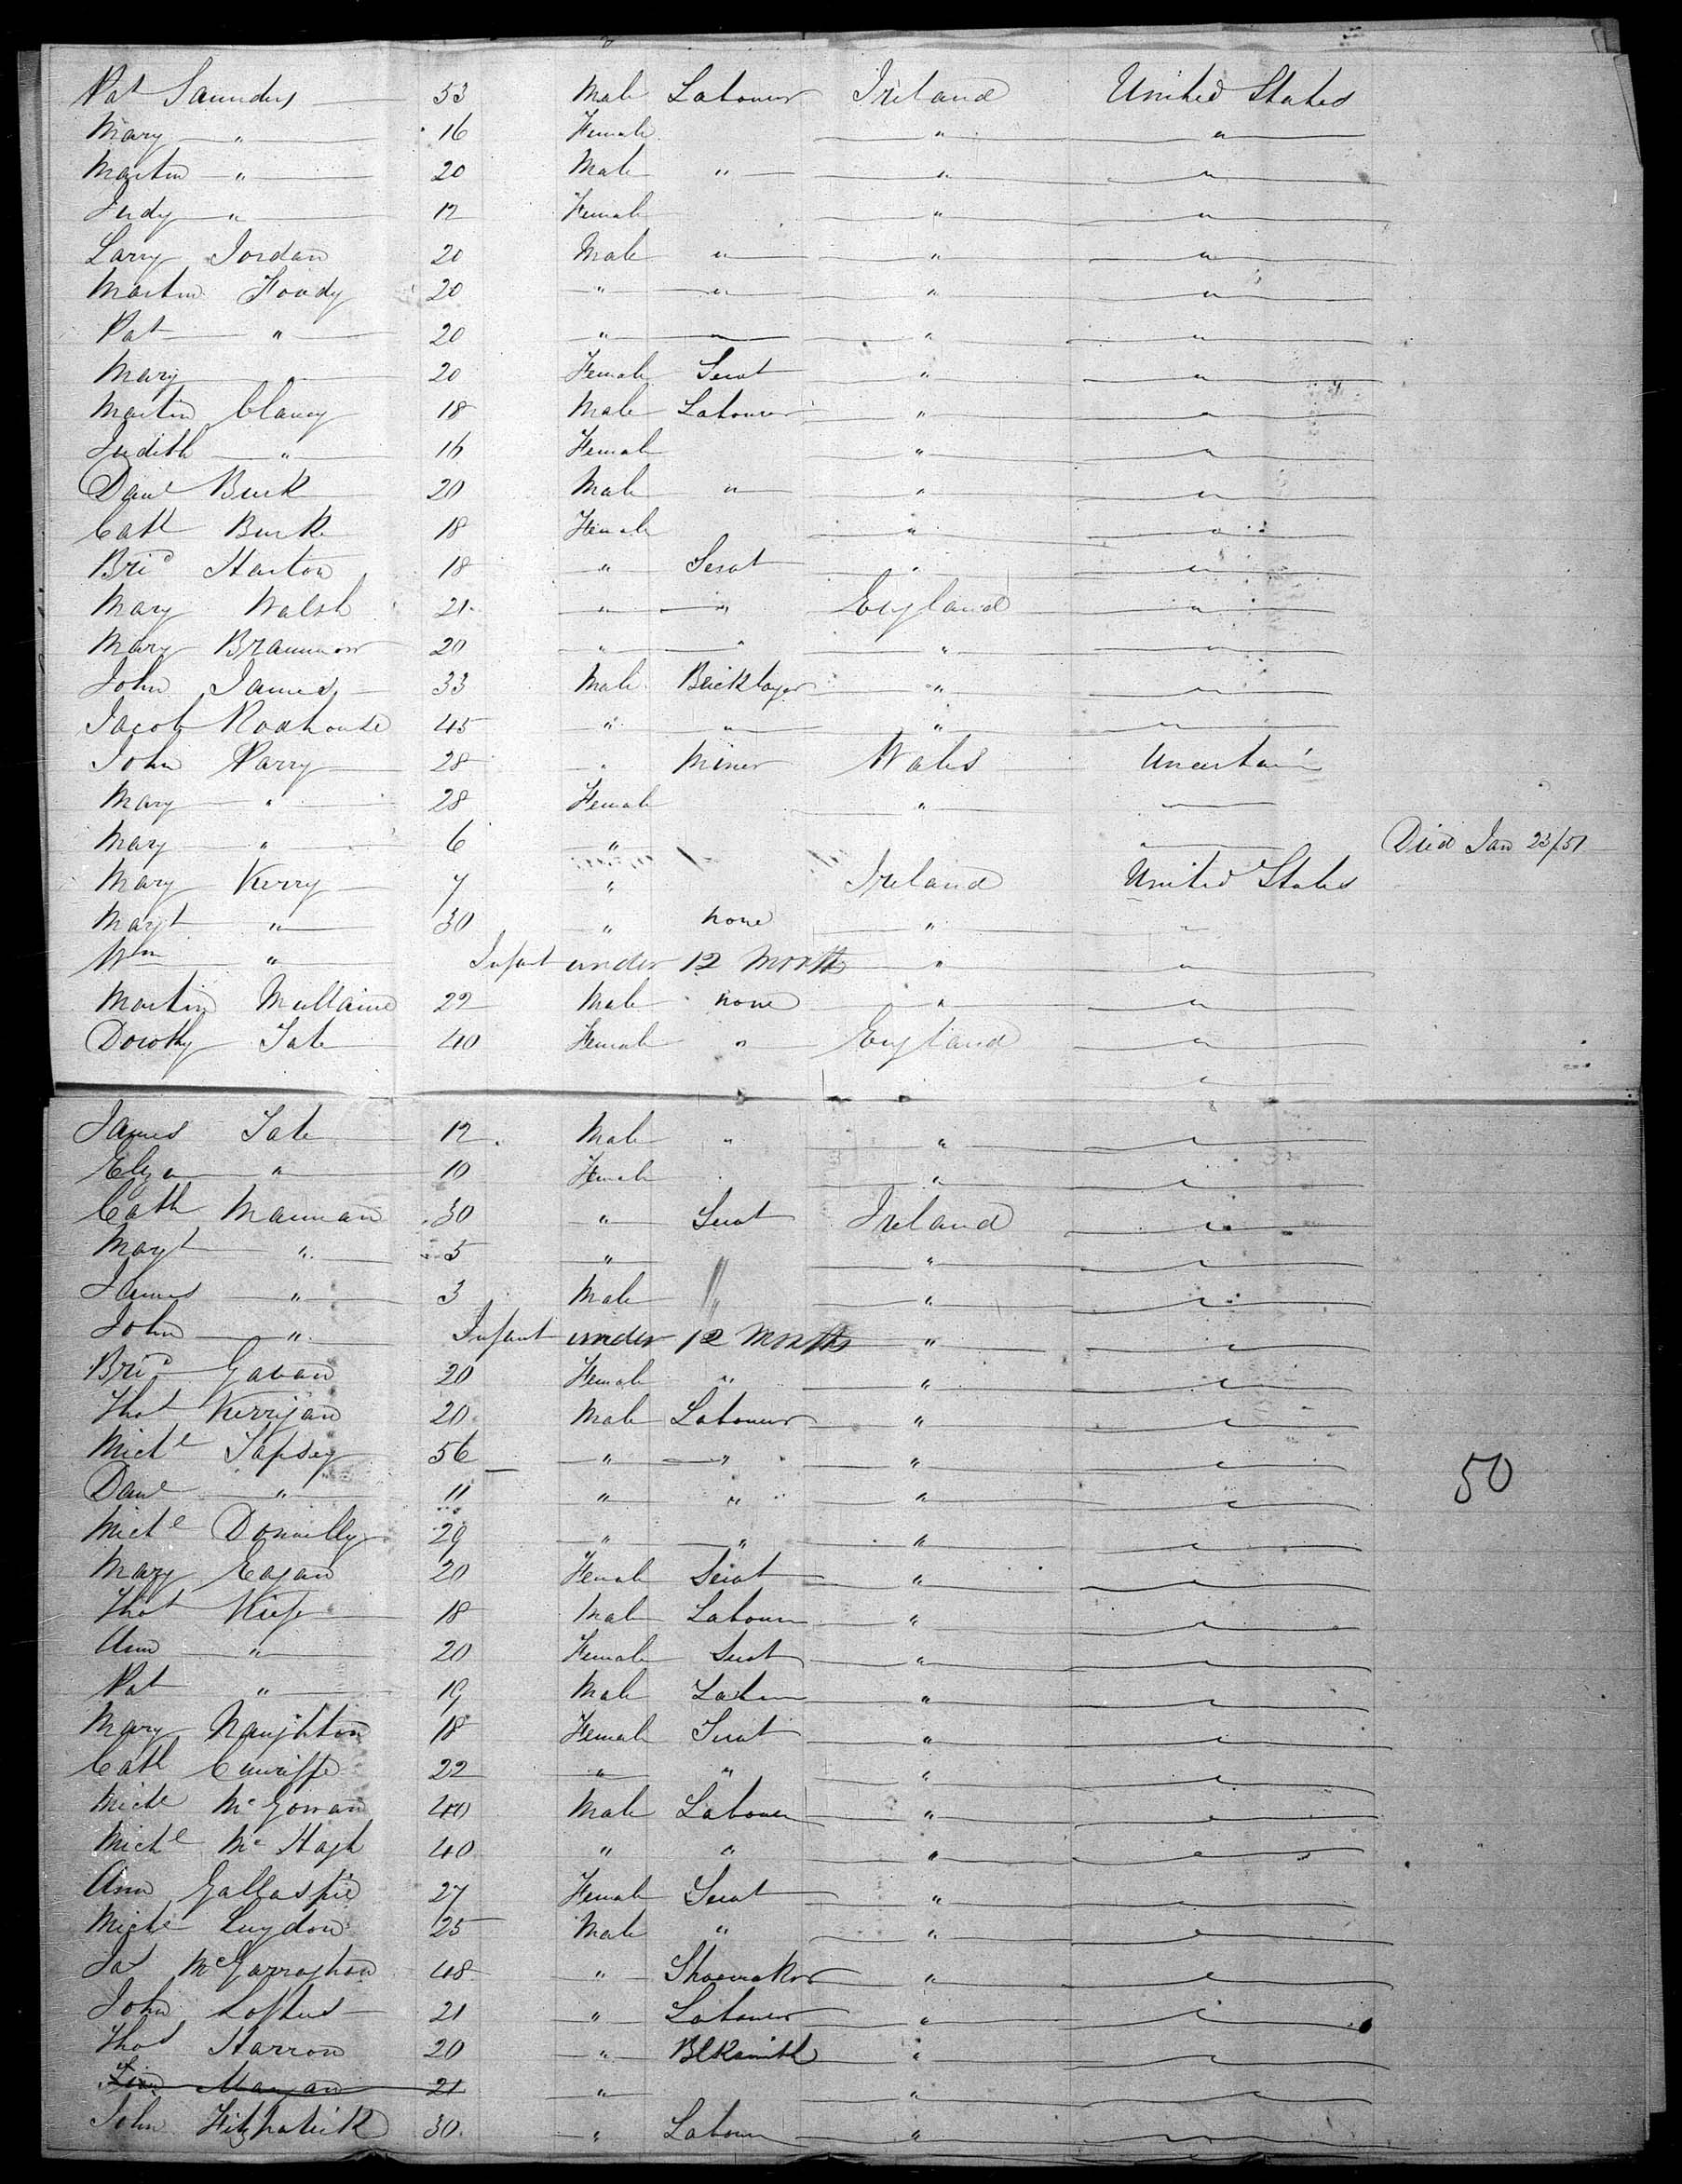 Pat Saunders 53 Male Labourer Ireland United States
Mary " 16 Female " "
Martin " 20 Male " " "
Judy " 12 Female " "
Larry Jordan 20 Male " " "
Martin Foudy 20 " " " "
Pat " 20 " " " "
Mary 20 Female Servt " "
Martin Clancy 18 Male Labourer " "
Judith " 16 Female " "
Danl Burk 20 Male " " "
Cath Burke 18 Female " "
Brid Harton 18 " Servt " "
Mary Walsh 21 " " England "
Mary Brannon 20 " " " "
John James 33 Male Bricklayer " "
Jacob Roadhouse 45 " " " "
John Parry 28 " Miner Wales Uncertain
Mary " 28 Female "
Mary " 6 " Died Jan 23/51
Mary Kerry 7 " Ireland United States
Margt " 30 " none " "
Wm " Infant under 12 Months " "
Martin Mullaine 22 Male none " "
Dorothy Tate 40 Female " England "
James Tate 12 Male " " "
Eliza " 10 Female " "
Cath Mannan 30 " Servt Ireland "
Margt " 5 " " "
James " 3 Male " "
John " Infant under 12 Months " "
Brid Gavan 20 Female " " "
Thos Kerrigan 20 Male Labourer " "
Michl Tapsey 56 " " " "
Danl " 11 " " " "
Michl Donnelly 29 " " " "
Mary Eagan 20 Female Servt " "
Thos Kiefe 18 Male Labourer " "
Ann " 20 Female Servt " "
Pat " 19 Male Labour " "
Mary Naughton 18 Female Servt " "
Cath Cunniffe 22 " " " "
Michl McGowan 40 Male Labourer " "
Michl McHagh 40 " " " "
Ann Gallaspie 27 Female Servt " "
Michl Luydon 25 Male " " "
Jas McGarraghan 48 " Shoemaker " "
John Loftus 21 " Labourer " "
Thos Harron 20 " Blksmith " "
21 " "
John Fitzpatrick 30 " Labour "
50